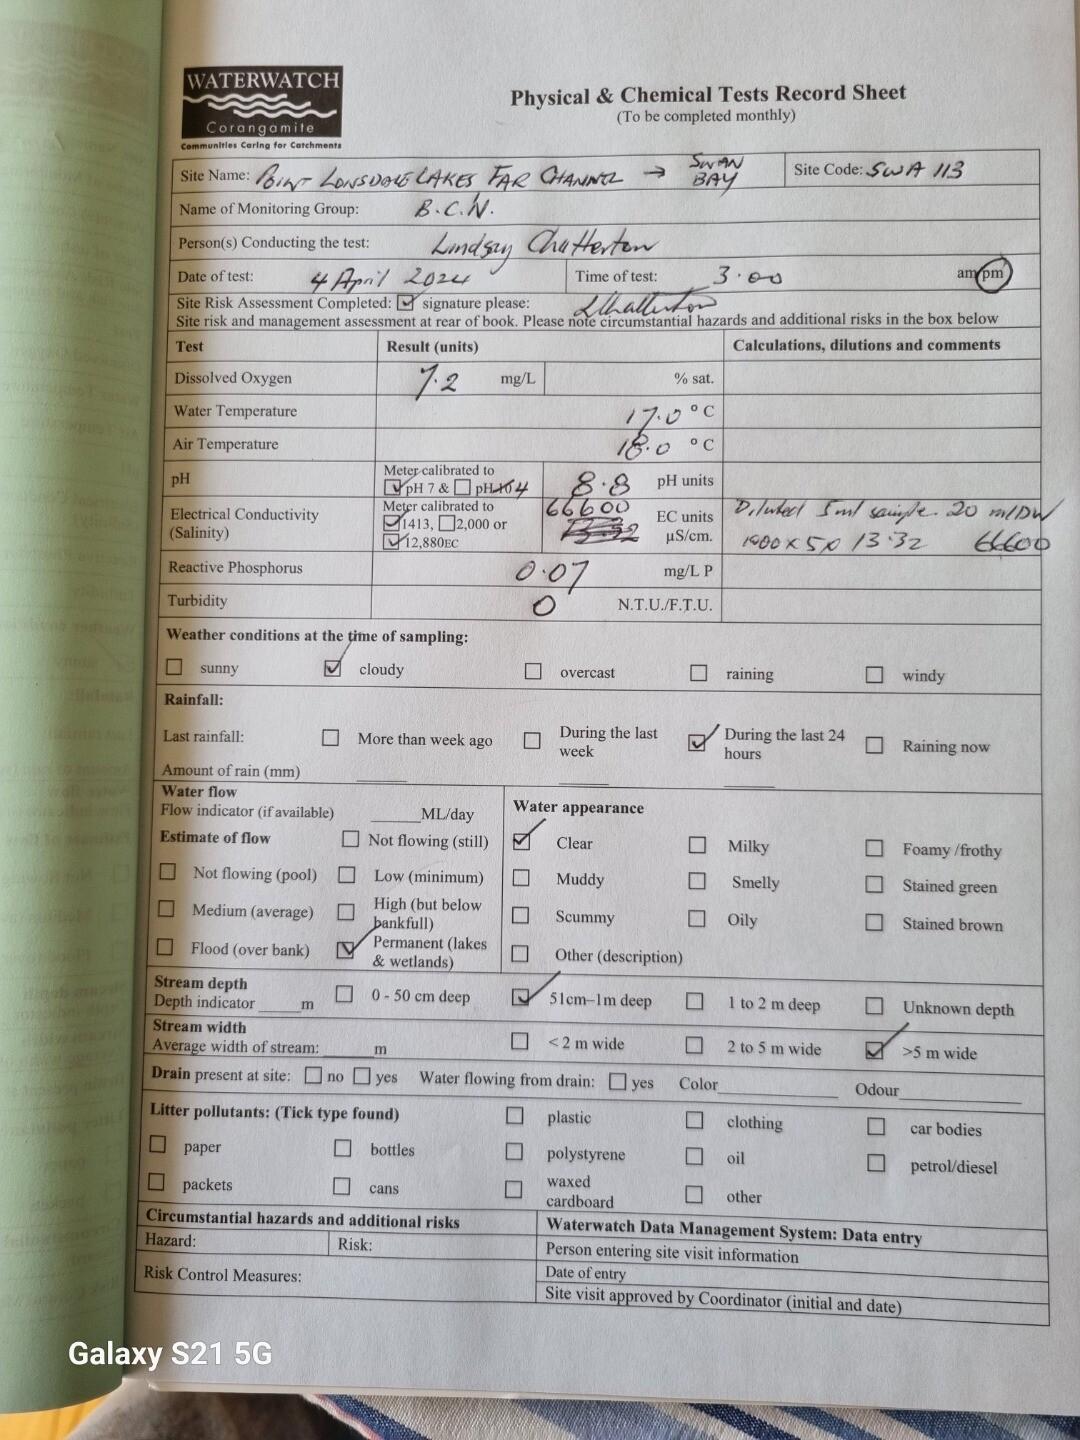 WATERWATCH
Corangamite
Communities Caring for Catchments
Physical & Chemical Tests Record Sheet
(To be completed monthly)
Site Name: POINT LONSDALE LAKES FAR CHANNEL → SWAN BAY Site Code: SWA 113
Name of Monitoring Group: B.C.N.
Person(s) Conducting the test: Lindsay Chatterton
Date of test: 4 April 2024 Time of test: 3.00 am/pm
Site Risk Assessment Completed: signature please: LChatterton
Site risk and management assessment at rear of book. Please note circumstantial hazards and additional risks in the box below
Test Result (units) Calculations, dilutions and comments
Dissolved Oxygen 7.2 mg/L % sat.
Water Temperature 17.0 °C
Air Temperature 18.0 °C
pH Meter calibrated to pH 7 & pH 10 4 8.8 pH units
Electrical Conductivity (Salinity) Meter calibrated to 1413, 2,000 or 12,880EC 66600 EC units µS/cm. Diluted 5ml sample. 20 ml DW
1000 x 5 x 13.32 66600
Reactive Phosphorus 0.07 mg/L P
Turbidity 0 N.T.U./F.T.U.
Weather conditions at the time of sampling:
sunny cloudy overcast raining windy
Rainfall:
Last rainfall: More than week ago During the last week During the last 24 hours Raining now
Amount of rain (mm)
Water flow
Flow indicator (if available) ML/day
Estimate of flow Not flowing (still)
Not flowing (pool) Low (minimum)
Medium (average) High (but below bankfull)
Flood (over bank) Permanent (lakes & wetlands)
Water appearance
Clear Milky Foamy /frothy
Muddy Smelly Stained green
Scummy Oily Stained brown
Other (description)
Stream depth
Depth indicator m 0 - 50 cm deep 51cm–1m deep 1 to 2 m deep Unknown depth
Stream width
Average width of stream: m < 2 m wide 2 to 5 m wide >5 m wide
Drain present at site: no yes Water flowing from drain: yes Color Odour
Litter pollutants: (Tick type found) plastic clothing car bodies
paper bottles polystyrene oil petrol/diesel
packets cans waxed cardboard other
Circumstantial hazards and additional risks
Hazard: Risk:
Risk Control Measures:
Waterwatch Data Management System: Data entry
Person entering site visit information
Date of entry
Site visit approved by Coordinator (initial and date)
Galaxy S21 5G